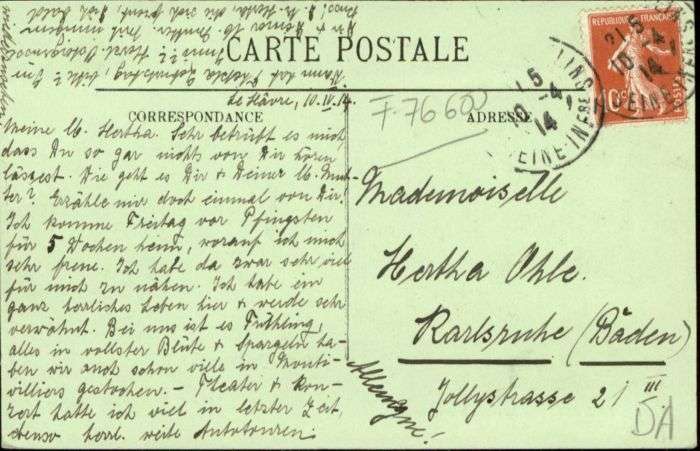 CARTE POSTALE
CORRESPONDANCE
ADRESSE
RÉPUBLIQUE FRANÇAISE
POSTES
10c
F. 76600
Le Hâvre, 10. IV. 14.
Meine lb. Hertha. Sehr betrübt es mich,
dass Du so gar nichts von Dir hören
lässest. Wie geht es Dir & Deiner lb. Mut-
ter? Erzähle mir doch einmal von Dir!
Ich komme Freitag vor Pfingsten
für 5 Wochen heim, worauf ich mich
sehr freue. Ich habe da zwar sehr viel
für mich zu nähen. Ich habe ein
ganz herrliches Leben hier & werde sehr
verwöhnt. Bei uns ist es Frühling,
alles in vollster Blüte & Spargeln ha-
ben wir auch schon viele in Monti-
villiers gestochen. – Theater & Kon-
zert hatte ich viel in letzter Zeit,
ebenso herrl. weite Autotouren.
Mademoiselle
Hertha Ohle.
Karlsruhe (Baden)
Jollystrasse 21 III
Allemagne!
DA